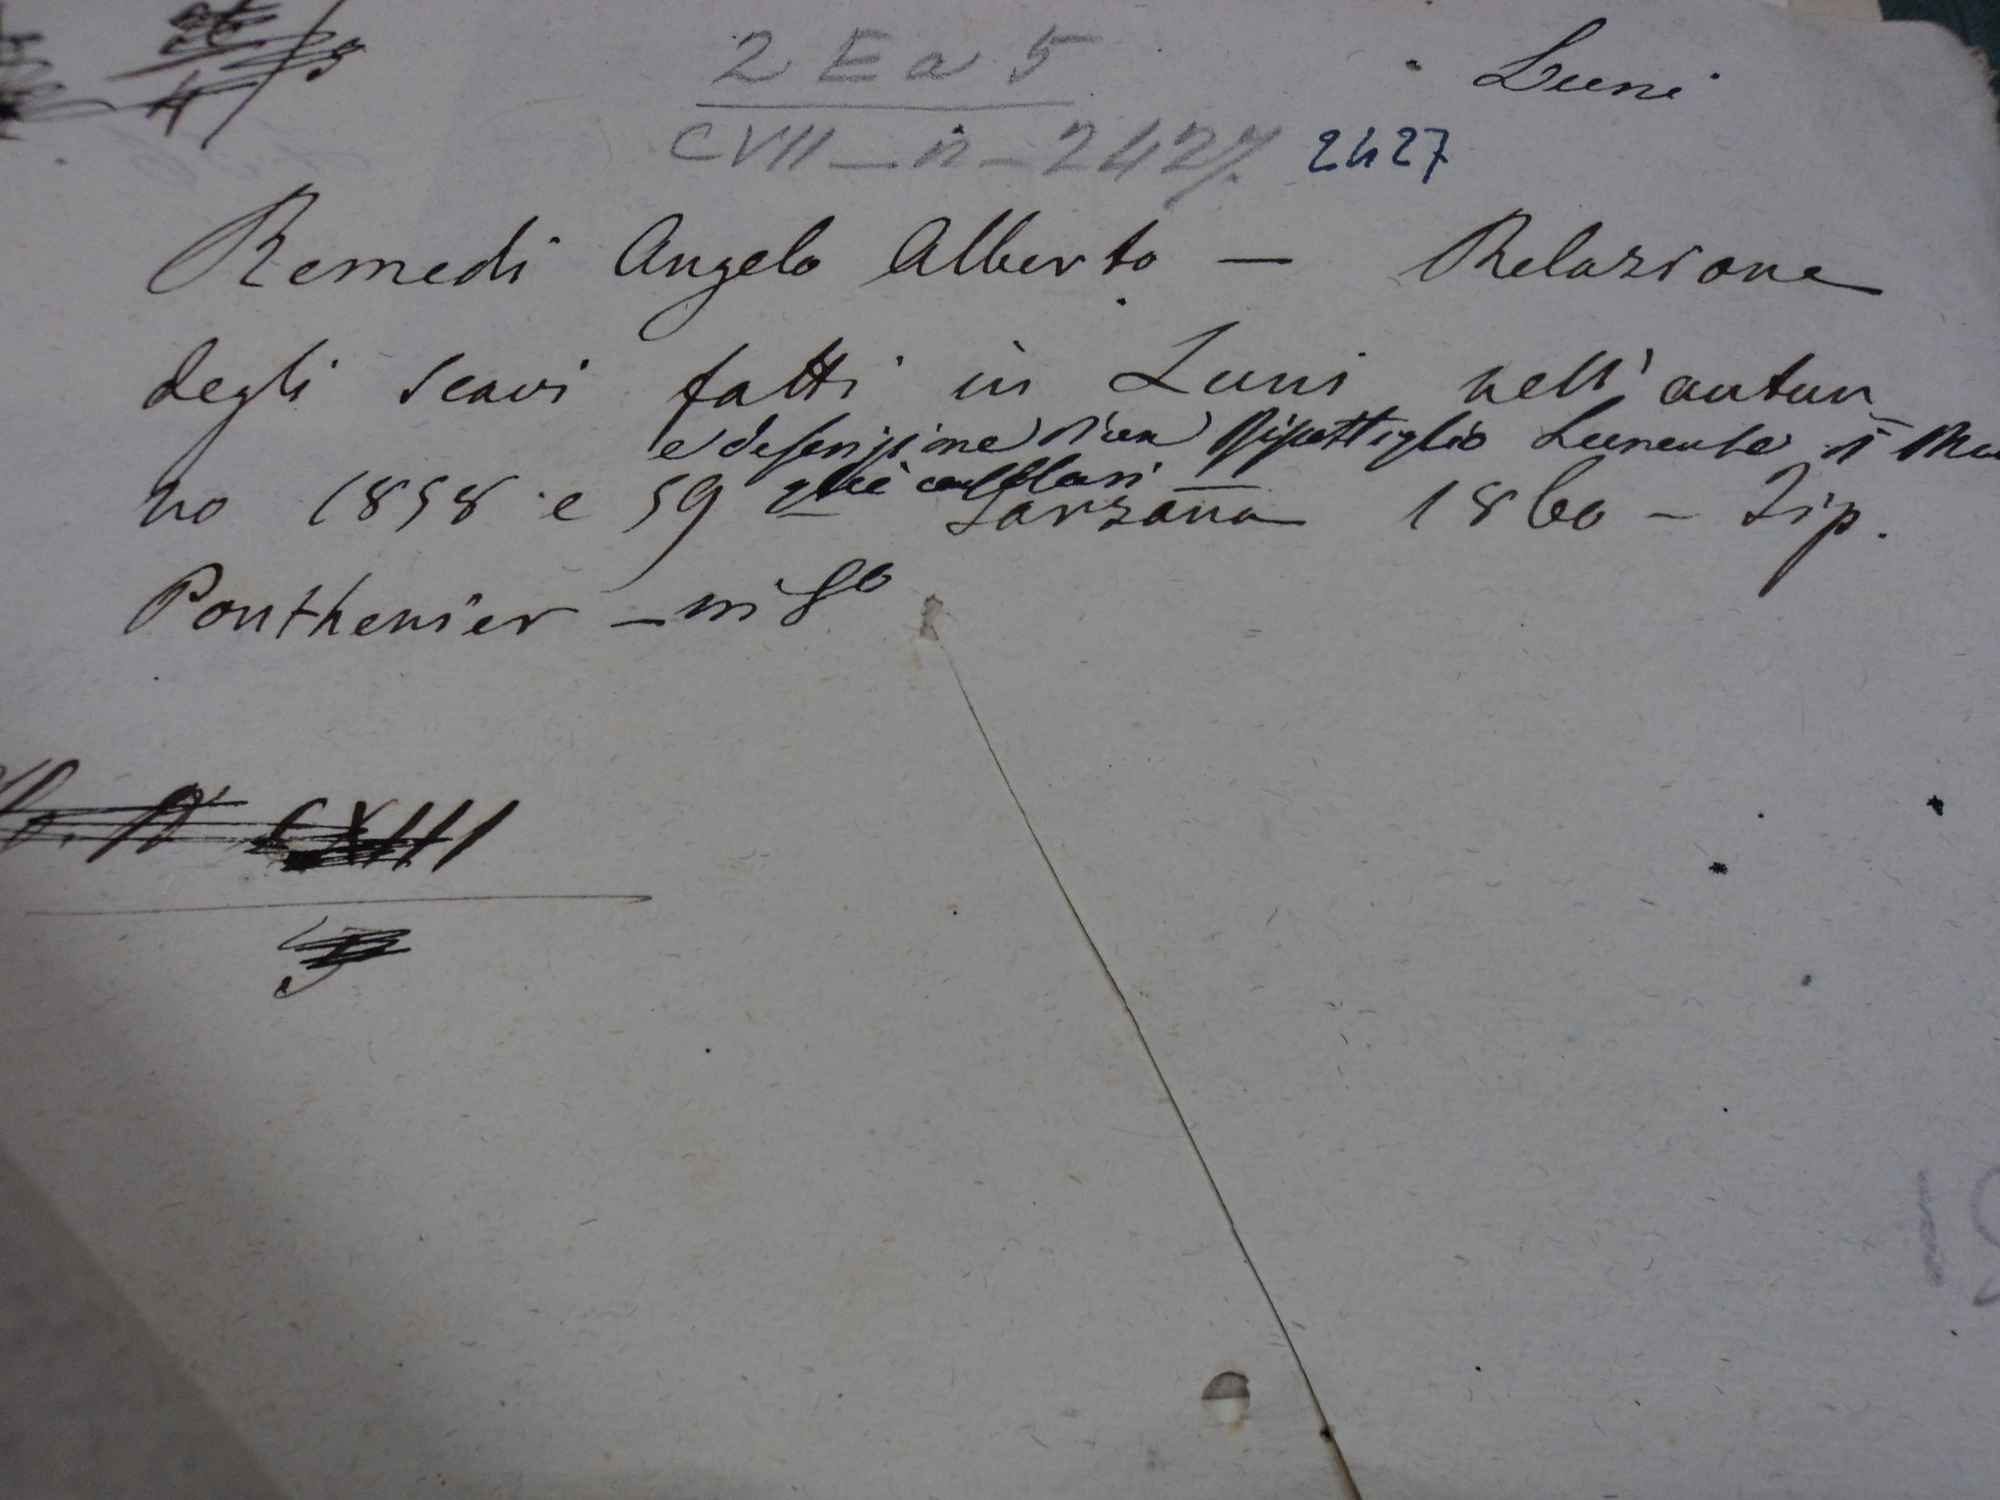 2 E a 5
Luni
CVII - n - 2427. 2427
Remedi Angelo Alberto — Relazione
degli scavi fatti in Luni nell' autun
e descrizione d'un Ripostiglio Lunense di
no 1858 e 59 Sarzana 1860 - Tip.
Ponthenier - in 8º
CXIII